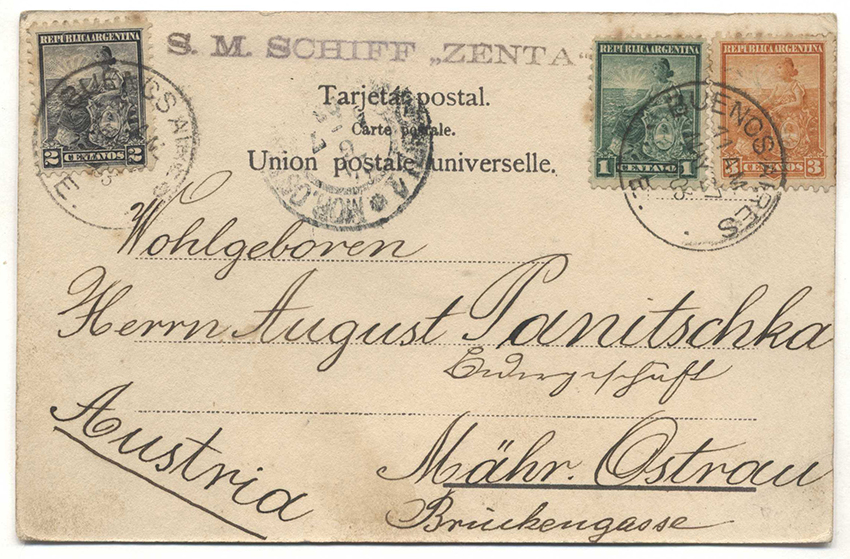 REPÚBLICA ARGENTINA
2 CENTAVOS 2
S. M. SCHIFF „ZENTA“
REPÚBLICA ARGENTINA
1 CENTAVO 1
REPÚBLICA ARGENTINA
CENTAVOS 3
BUENOS AIRES
BUENOS AIRES
11 AM
Tarjeta postal.
Carte postale.
Union postale universelle.
Wohlgeboren
Herrn August Panitschka
Mähr. Ostrau
Austria
Brückengasse